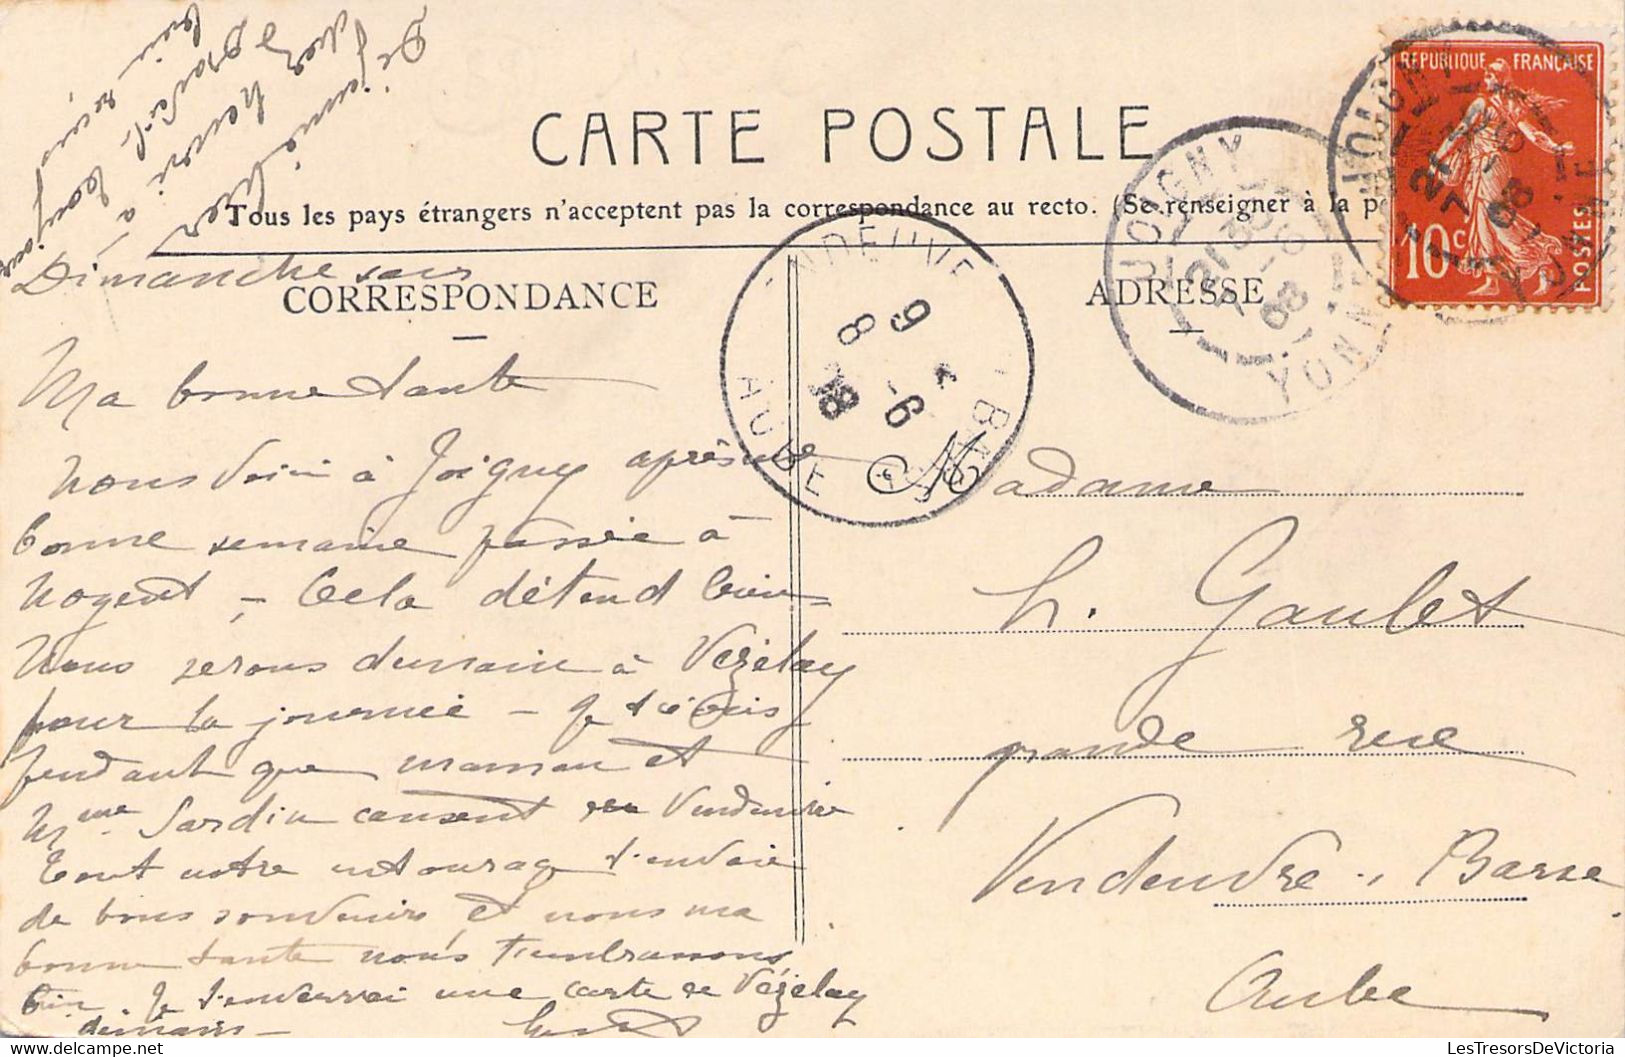 CARTE POSTALE
Tous les pays étrangers n'acceptent pas la correspondance au recto. (Se renseigner à la po
CORRESPONDANCE
ADRESSE
RÉPUBLIQUE FRANÇAISE
10c
POSTES
JOIGNY
21 30
7 -6
08
YONNE
JOIGNY
21
7 -6
08
YONNE
NDEUVRE
BARSE
9
8 -6
08
AUBE
Dimanche soir
Ma bonne tante
Nous voici à Joigny après une
bonne semaine passée à
Nogent - Cela détend bien -
Nous serons demain à Vézelay
pour la journée - Je t'écris
pendant que maman et
Mme Sardin causent Vendeuvre
Tout notre entourage t'envoie
de bons souvenirs et nous ma
bonne tante nous t'embrassons
bien. Je t'enverrai une carte de Vézelay
demain -
à
toujours
bien
Madame
h. Gaulet
grande rue
Vendeuvre s. Barse
Aube
LesTresorsDeVictoria